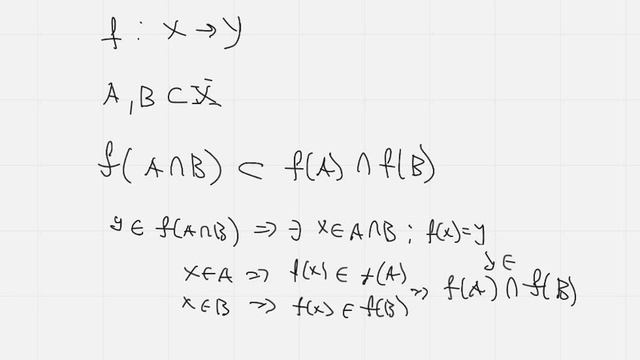 f : X → Y
A, B ⊂ X
f(A∩B) ⊂ f(A) ∩ f(B)
y ∈ f(A∩B) ⇒ ∃ x∈A∩B ; f(x)=y
x∈A ⇒ f(x) ∈ f(A)
x∈B ⇒ f(x) ∈ f(B) ⇒ f(A) ∩ f(B)
∈